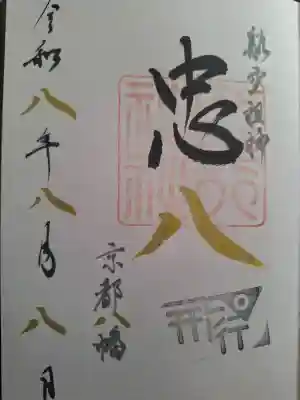 航空祖神
忠八
京都八幡
令和八年八月八日